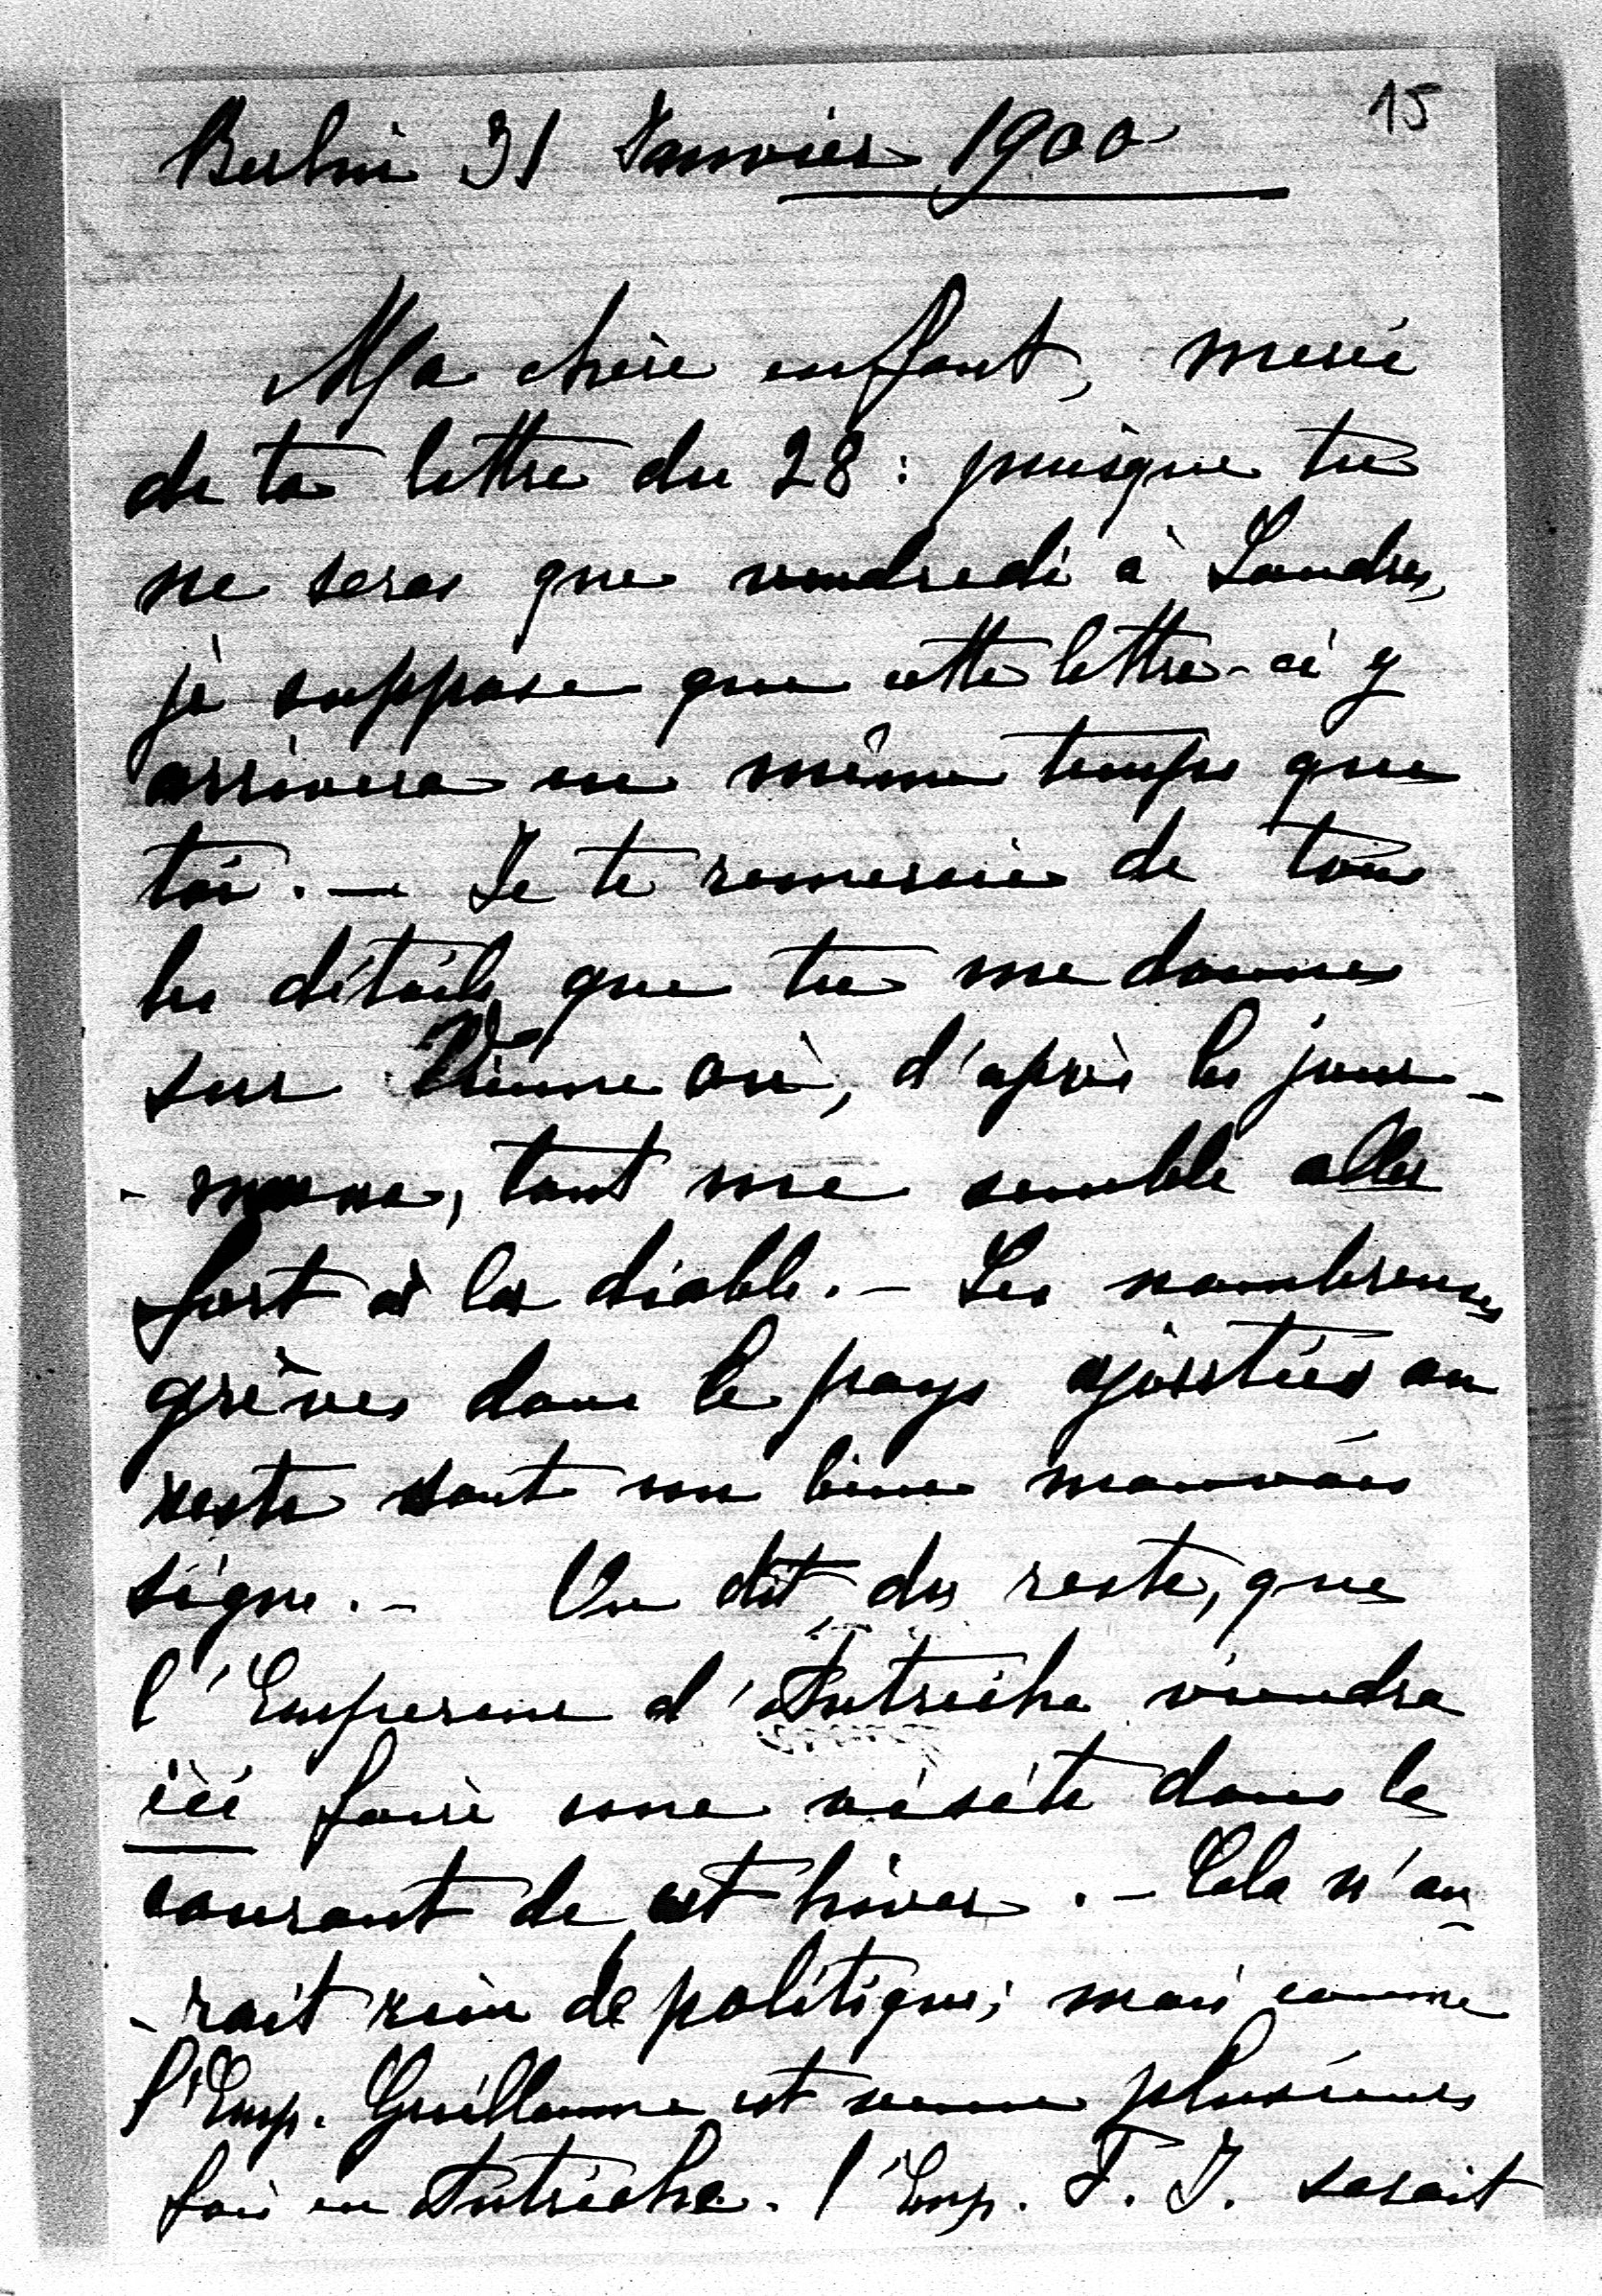 15
Berlin 31 Janvier 1900
Ma chère enfant, merci
de ta lettre du 28 : puisque tu
ne seras que vendredi à Londres,
je suppose que cette lettre-ci y
arrivera en même temps que
toi. — Je te remercie de tous
les détails que tu me donnes
sur Vienne où, d'après les jour-
- naux, tout me semble aller
fort à la diable. — Les nombreuses
grèves dans le pays ajoutées au
reste sont un bien mauvais
signe. — On dit, du reste, que
l'Empereur d'Autriche viendra
ici faire une visite dans le
courant de cet hiver. — Cela n'au-
- rait rien de politique; mais comme
l'Emp. Guillaume est venu plusieurs
fois en Autriche. l'Emp. F. J. serait